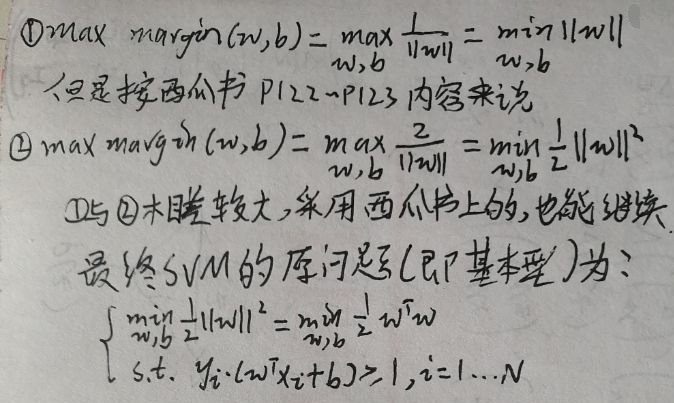 ①max margin(w,b)=max_{w,b} 1/||w||=min_{w,b}||w||
但是按西瓜书P122~P123内容来说
②max margin(w,b)=max_{w,b} 2/||w||=min_{w,b} 1/2||w||²
①与②木目差较大,采用西瓜书上的,也能继续.
最终SVM的原问题(即基本型)为:
{ min_{w,b} 1/2||w||²=min_{w,b} 1/2 wᵀw
s.t. yᵢ·(wᵀxᵢ+b)≥1,i=1...N